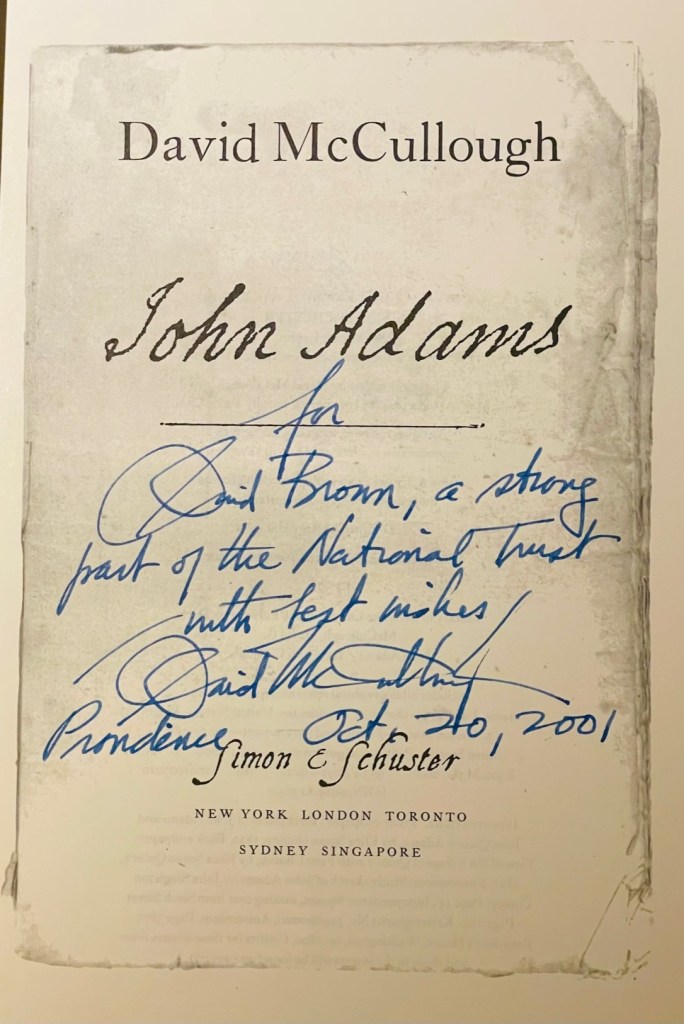 David McCullough
John Adams
for
David Brown, a strong
part of the National Trust
with best wishes
David McCullough
Providence Oct. 20, 2001
Simon & Schuster
NEW YORK LONDON TORONTO
SYDNEY SINGAPORE